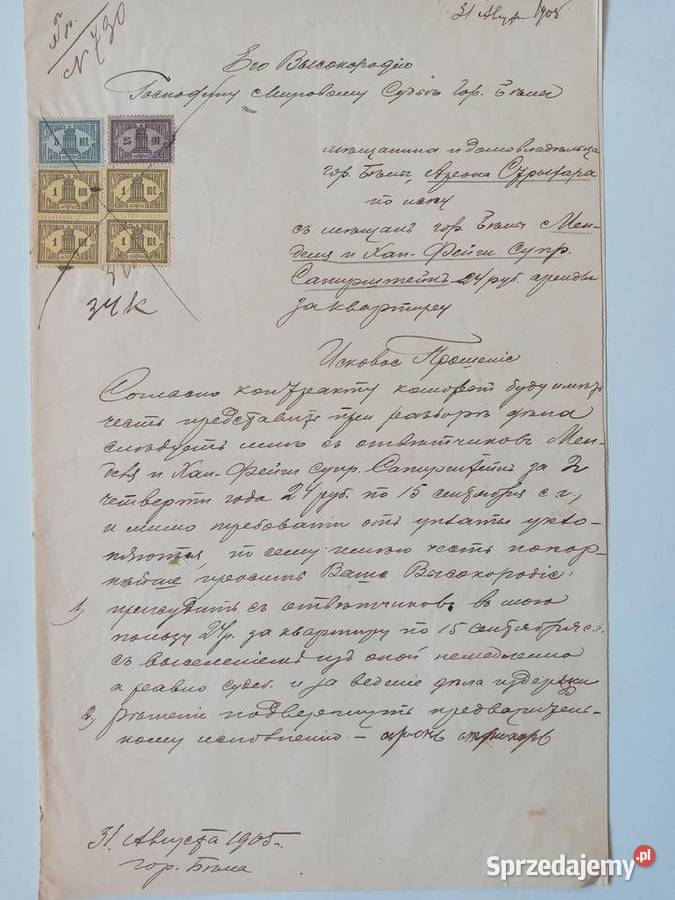 Гр.
N 730
31 Авгу 1905
Его Высокородію
Господину Мировому Судьѣ гор. Бѣлы
5
25
1
1
1
1
34 к
мѣщанина и домовладѣльца
гор. Бѣлы,
по иску
съ мѣщанъ гор. Бѣлы Мен-
деля и Хаи-Фейги супр.
Сапирштейнъ 24 руб. аренды
за квартиру
Исковое Прошеніе
Согласно контракту который буду имѣть
честь представить при разборѣ дѣла
слѣдуетъ мнѣ съ отвѣтчиковъ Мен-
деля и Хаи-Фейги супр. Сапирштейнъ за 2
четверти года 24 руб. по 15 сентября с. г.,
и мимо требованій отъ уплаты укло-
няются, по сему имѣю честь покор-
нѣйше просить Ваше Высокородіе:
1) присудить съ отвѣтчиковъ въ мою
пользу 24 р. за квартиру по 15 сентября с.г.
съ выселеніемъ изъ оной немедленно
а равно судеб. и за веденіе дѣла издержки
2) рѣшеніе подвергнуть предваритель-
ному исполненію —
31 Августа 1905 г.
гор. Бѣла
Sprzedajemy.pl